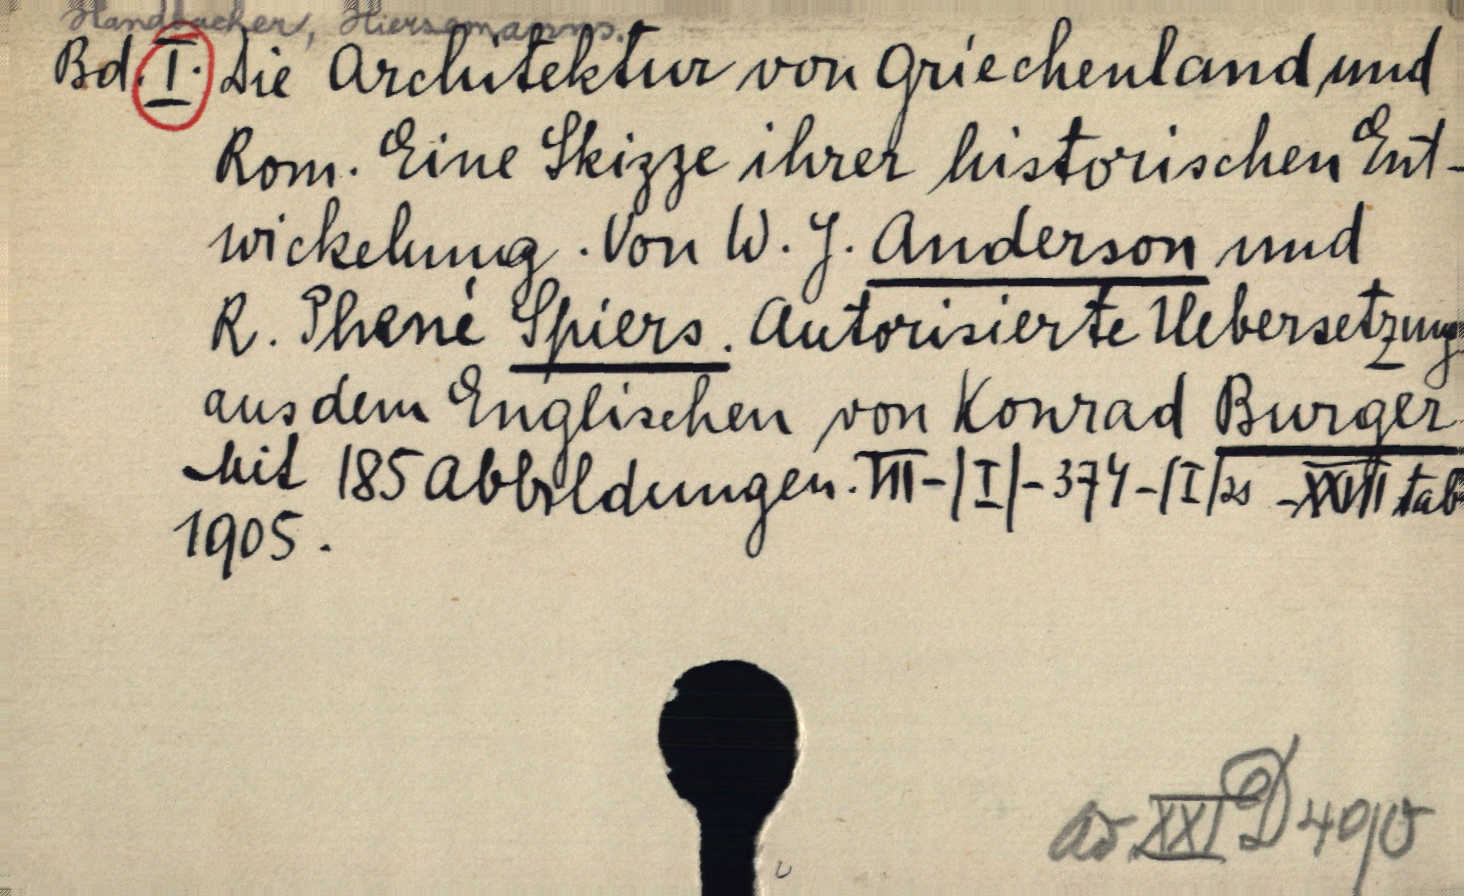 Handbücher, Hiersemanns.
Bd. I. Die Architektur von Griechenland und
Rom. Eine Skizze ihrer historischen Ent-
wickelung. Von W. J. Anderson und
R. Phené Spiers. Autorisierte Uebersetzung
aus dem Englischen von Konrad Burger
Mit 185 Abbildungen. VIII-|I|-374-|I|
tab
1905.
ad XXI D